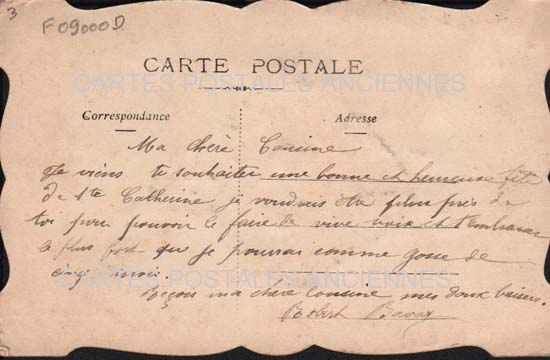 3
F09000D
CARTE POSTALE
CARTES POSTALES ANCIENNES
Correspondance Adresse
Ma chère Cousine
Je viens te souhaiter une bonne et heureuse fête
de Ste Catherine je voudrais être plus près de
toi pour pouvoir le faire de vive voix et t'embrasser
le plus fort que je pourrai comme gosse de
cinq mois
CARTES POSTALES ANCIENNES
Reçois ma chère cousine mes doux baisers.
Robert